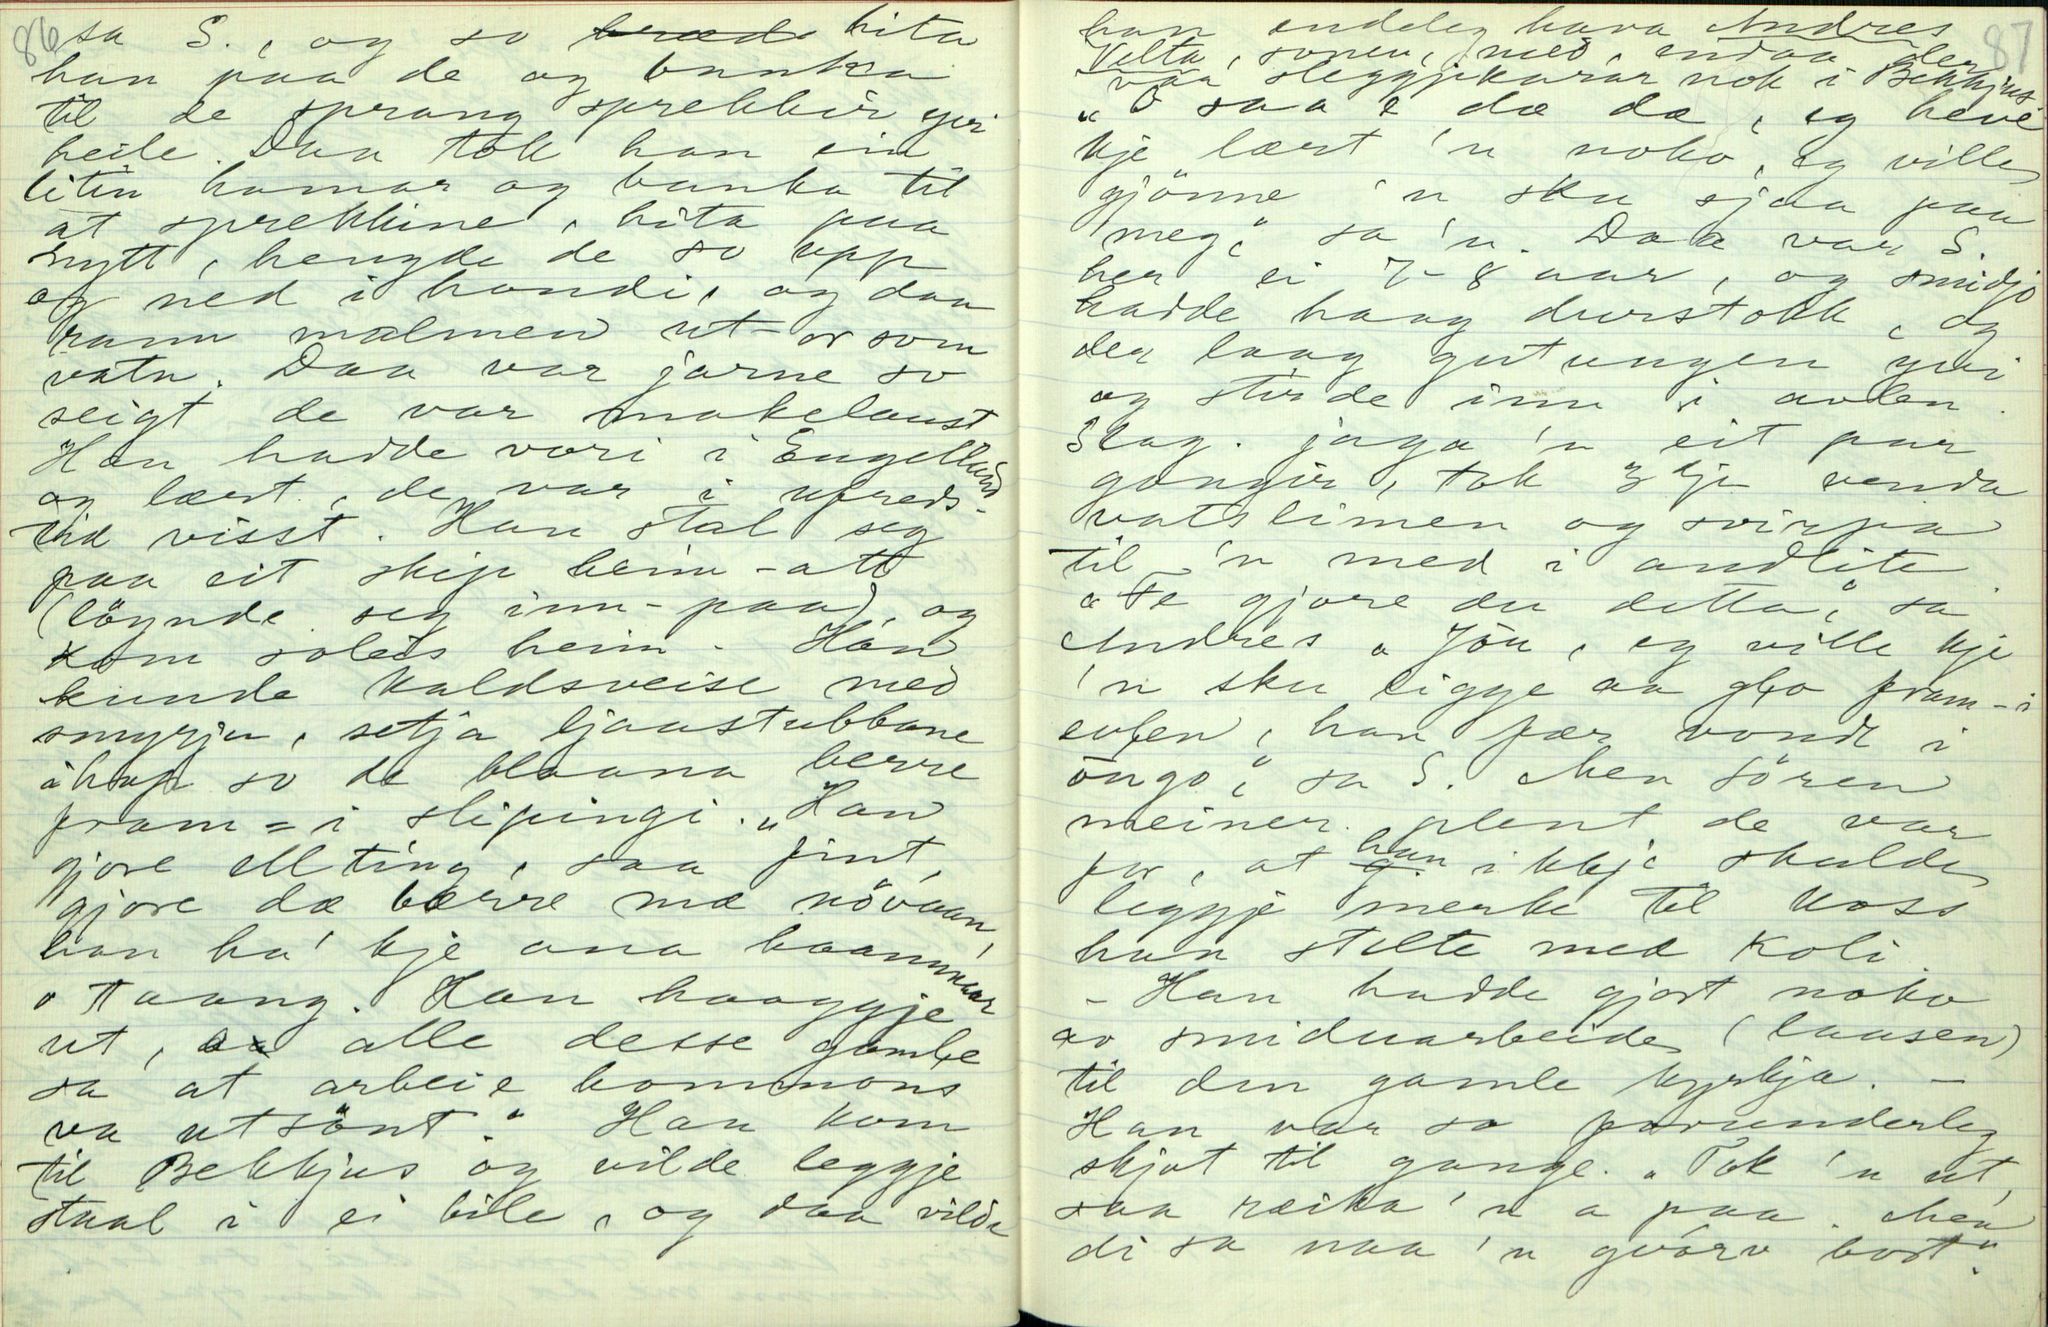 86
sa S., og so hita
han paa de og banka
til de sprang sprekkir yvi
heile. Daa tok han ein
liten hamar og banka til
at sprekkine, hita paa
nytt, hengde de so upp
og ned i handi, og daa
rann malmen ut-or som
vatn. Daa var jarne so
seigt de var makelaust
Han hadde vori i Engelland
og lært, de var i ufreds-
tid visst. Han stal seg
paa eit skip heim-att
(löynde seg inn-paa) og
kom soleis heim. Han
kunde kaldsveise med
smyrju, setja ljaastubbane
ihop so de blaana berre
fram-i slipingi. "Han
gjore allting, saa fint,
gjore dæ bærre mæ növaan,
han ha' kje ana haanmaar
o taang. Han haaggje
ut, alle desse gamle
sa at arbeie hommons
va utsönt." Han kom
til Bekkjus og vilde leggje
staal i ei bile, og daa vilde
87
han endeleg hava Andres
Velta, sonen, med, endaa der
var sleggjekarar nok i Bekkjus.
"O saa e dæ dæ, eg heve
kje lært 'n noko, eg ville
gjönne 'n sku sjaa paa
meg," sa 'n. Daa var S.
her ei 7-8 aar, og smidjo
hadde haag durstokk, og
der laag gutungen yvi
og stirde inn i avlen.
Slag. jaga 'n eit par
gongir, tok 3dje venda
vatslimen og svirpa
til 'n med i andlite.
"Fe gjore du detta," sa
Andres "Jön, eg ville kje
'n sku ligge aa glo fram-i
evlen, han fær vondt i
öugo," sa S. Men Sören
meiner plent de var
for, at han ikkje skulde
leggje merke til koss
han stelte med koli.
- Han hadde gjort noko
av smiduarbeide (laasen)
til den gamle kyrkja. -
Han var so forunderleg
skjot til gange. "Tok 'n ut,
saa reika 'n a paa. Men
di sa naa 'n gvarv bort".